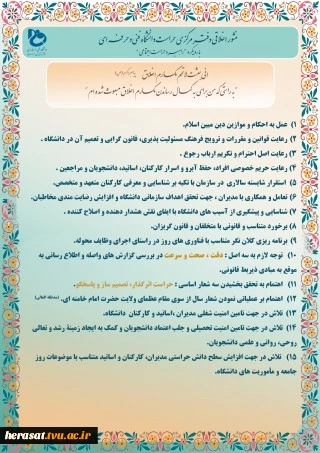 منشور اخلاقی دفتر مرکزی حراست دانشگاه فنی و حرفه ای
با رویکرد "از امنیت تا حراست اجتماعی"
انی بعثت لاتمم مکارم اخلاق
"به راستی که من برای به کمال رساندن مکارم اخلاق مبعوث شده ام"
۱) عمل به احکام و موازین دین مبین اسلام.
۲) رعایت قوانین و مقررات و ترویج فرهنگ مسئولیت پذیری، قانون گرایی و تعمیم آن در دانشگاه .
۳) رعایت اصل احترام و تکریم ارباب رجوع .
۴) رعایت حریم خصوصی افراد، حفظ آبرو و اسرار کارکنان، اساتید، دانشجویان و مراجعین .
۵) استقرار شایسته سالاری در سازمان با تکیه بر شناسایی و معرفی کارکنان متعهد و متخصص.
۶) تعامل و همکاری با مدیران ، جهت تحقق اهداف سازمانی دانشگاه و افزایش رضایت مندی مخاطبان.
۷) شناسایی و پیشگیری از آسیب های دانشگاه با ایفای نقش هشدار دهنده و اصلاح کننده .
۸) برخورد متناسب و قانونی با متخلفان و قانون گریزان.
۹) برنامه ریزی کلان نگر متناسب با فناوری های روز در راستای اجرای وظایف محوله.
۱۰) توجه لازم به سه اصل : دقت ، صحت و سرعت در بررسی گزارش های واصله و اطلاع رسانی به
موقع به مبادی ذیربط قانونی.
۱۱) اهتمام به تحقق بخشیدن سه شعار اساسی : حراست اثرگذار، تصمیم ساز و پاسخگو.
۱۲) اهتمام بر عملیاتی نمودن شعار سال از سوی مقام عظمای ولایت حضرت امام خامنه ای. (مدظله العالی)
۱۳) تلاش در جهت تامین امنیت شغلی مدیران ،اساتید و کارکنان دانشگاه.
۱۴) تلاش در جهت تامین امنیت تحصیلی و جلب اعتماد دانشجویان و کمک به ایجاد زمینۀ رشد و تعالی
روحی، روانی و علمی دانشجویان.
۱۵) تلاش در جهت افزایش سطح دانش حراستی مدیران، کارکنان و اساتید متناسب با موضوعات روز
جامعه و مأموریت های دانشگاه.
herasat.tvu.ac.ir